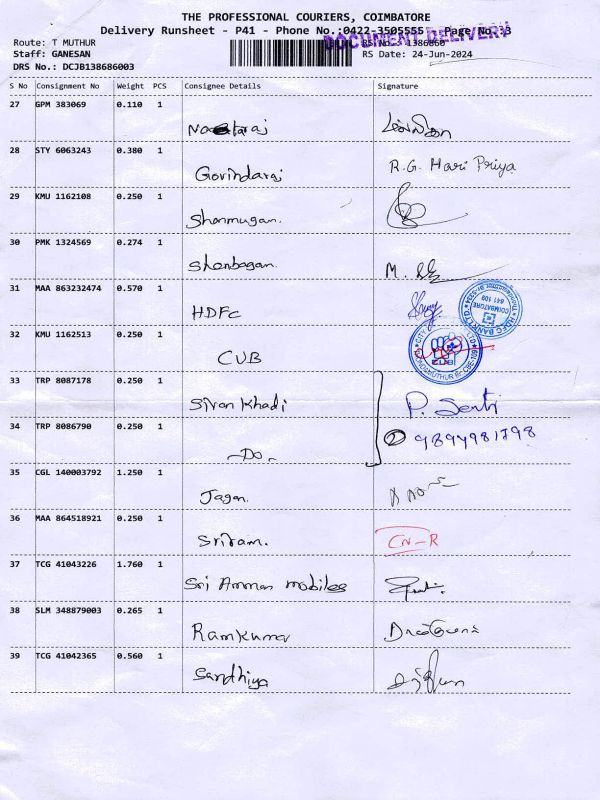 THE PROFESSIONAL COURIERS, COIMBATORE
Delivery Runsheet - P41 - Phone No.:0422-3505555 Page No 33
DOCUMENT DELIVERY
Route: T MUTHUR RS No.: 1386860
Staff: GANESAN RS Date: 24-Jun-2024
DRS No.: DCJB138686003
S No Consignment No Weight PCS Consignee Details Signature
27 GPM 383069 0.110 1
28 STY 6063243 0.380 1 Govindaraj R.G. Hari Priya
29 KMU 1162108 0.250 1 Shanmugan.
30 PMK 1324569 0.274 1 Shenbagan. M.
31 MAA 863232474 0.570 1 HDFC
HDFC BANK LTD
COIMBATORE
641 109
32 KMU 1162513 0.250 1 CUB
CUB
33 TRP 8087178 0.250 1 Sivan Khadi P.
34 TRP 8086790 0.250 1 -Do- 2
35 CGL 140003792 1.250 1 Jagan.
36 MAA 864518921 0.250 1 Sriram. CN-R
37 TCG 41043226 1.760 1 Sri Amman mobiles
38 SLM 348879003 0.265 1 Ramkumar
39 TCG 41042365 0.560 1 Sandhiya